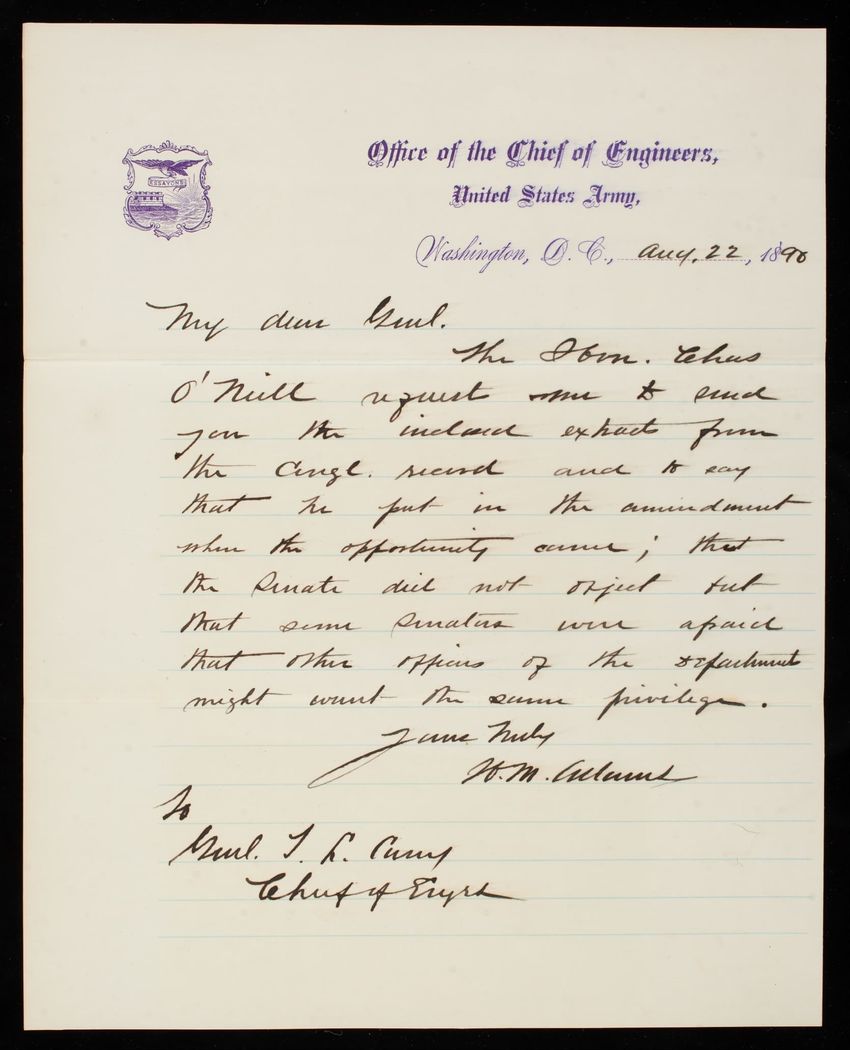 ESSAYONS
Office of the Chief of Engineers,
United States Army,
Washington, D. C., Aug. 22, 1890
My dear Genl.
The Hon. Chas
O'Neill request me to send
you the inclosed extracts from
the Congl. record and to say
that he put in the amendment
when the opportunity came; that
the Senate did not object but
that some Senators were afraid
that other officers of the Departments
might want the same privilege.
Yours Truly
H. M. Adams
To
Genl. T. L. Casey
Chief of Engrs